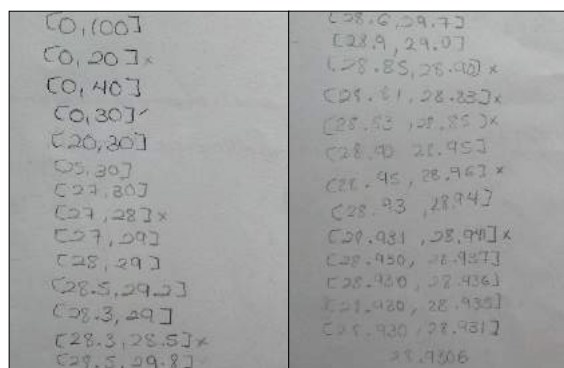 [0,100]
[0,20]×
[0,40]
[0,30]
[20,30]
[25,30]
[27,30]
[27,28]×
[27,29]
[28,29]
[28.5,29.2]
[28.3,29]
[28.3,28.5]×
[28.5,29.8]
[28.6,29.7]
[28.9,29.0]
[28.85,28.90]×
[28.81,28.83]×
[28.83,28.85]×
[28.90 28.95]
[28.95,28.96]×
[28.93,28.94]
[28.931,28.941]×
[28.930,28.937]
[28.930,28.936]
[28.930,28.935]
[28.930,28.931]
28.9306